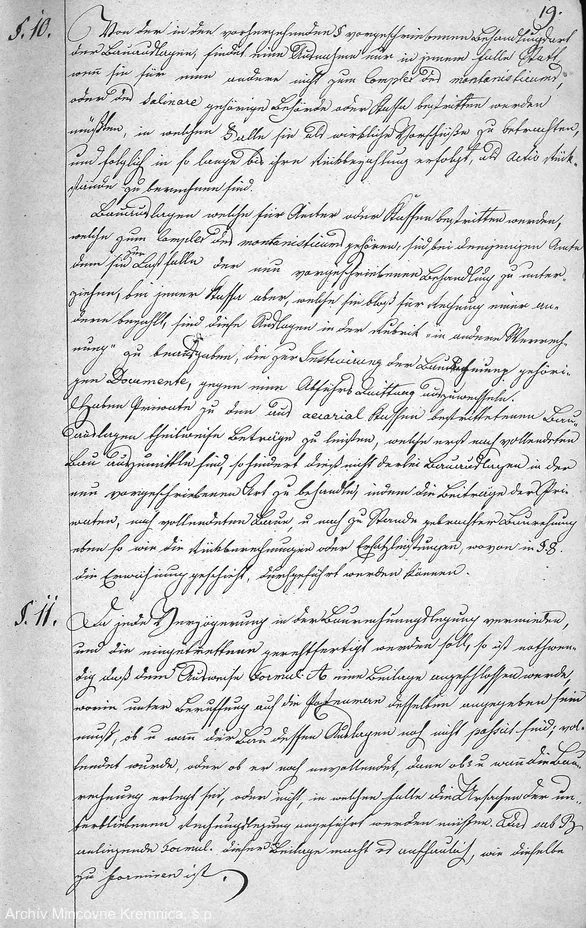 19.
§. 10. Von der in den vorhergehenden § vorgeschriebenen Behandlungsart
der Bauauslagen, findet eine Ausnahme nur in jenem Falle Statt,
wenn sie für eine andere nicht zum Complex des montanisticums,
oder des Salinare gehörige Behörde oder Kassa bestritten werden
müßten, in welchem Falle sie als wirkliche Vorschüße zu betrachten
und folglich in so lange bis ihre Rückbezahlung erfolgt, als activ Rück-
stände zu berechnen sind.
Bauauslagen welche für Ämter oder Kassen bestritten werden,
welche zum Complex des montanisticums gehören, sind bei demjenigen Amte
dem sie zur Last falle der neu vorgeschriebenen Behandlung zu unter-
ziehen, bei jener Kassa aber, welche sie blos für Rechnung einer an-
dern bezahlt, sind diese Auslagen in der Rubrik "in andere Verrech-
nung" zu beausgaben, die zur Instruirung der Baurechnung gehöri-
gen Documente, gegen eine Abfuhrs Quittung auszuwechseln.
Haben Private zu den aus aerarial Kassen bestrittenen Bau-
auslagen theilweise Beträge zu leisten, welche erst nach vollendeten
Bau auszumitteln sind, so hindert dieß nicht derlei Bauauslagen in der
neu vorgeschriebenen Art zu behandeln, indem die Beiträge der Pri-
vaten, nach vollendeten Baue, u nach zu Stande gebrachter Baurechnung
eben so wie die Rückberechnungen oder Ersatzleistungen, wovon in §. 8.
die Erwähnung geschieht, durchgeführt werden können.
§. 11. Da jede Verzögerung in der Baurechnungslegung vermieden,
und die eingetrettene gerechtfertigt werden soll, so ist nothwen-
dig daß dem Ausweise Formul. A eine Beilage angeschlossen werde,
worin unter Berufung auf die Postnumern desselben angegeben sein
muß, ob u wann der Bau dessen Auslagen noch nicht passirt sind, vol-
lendet wurde, oder ob er noch unvollendet, dann ob u wann die Bau-
rechnung erlegt sei, oder nicht, in welchem Falle die Ursachen der un-
terbliebenen Rechnungslegung angeführt werden müssen. Das sub B
anliegende Formul. dieser Beilage macht es anschaulich, wie dieselbe
zu formiren ist.
Archív Mincovne Kremnica, š.p.